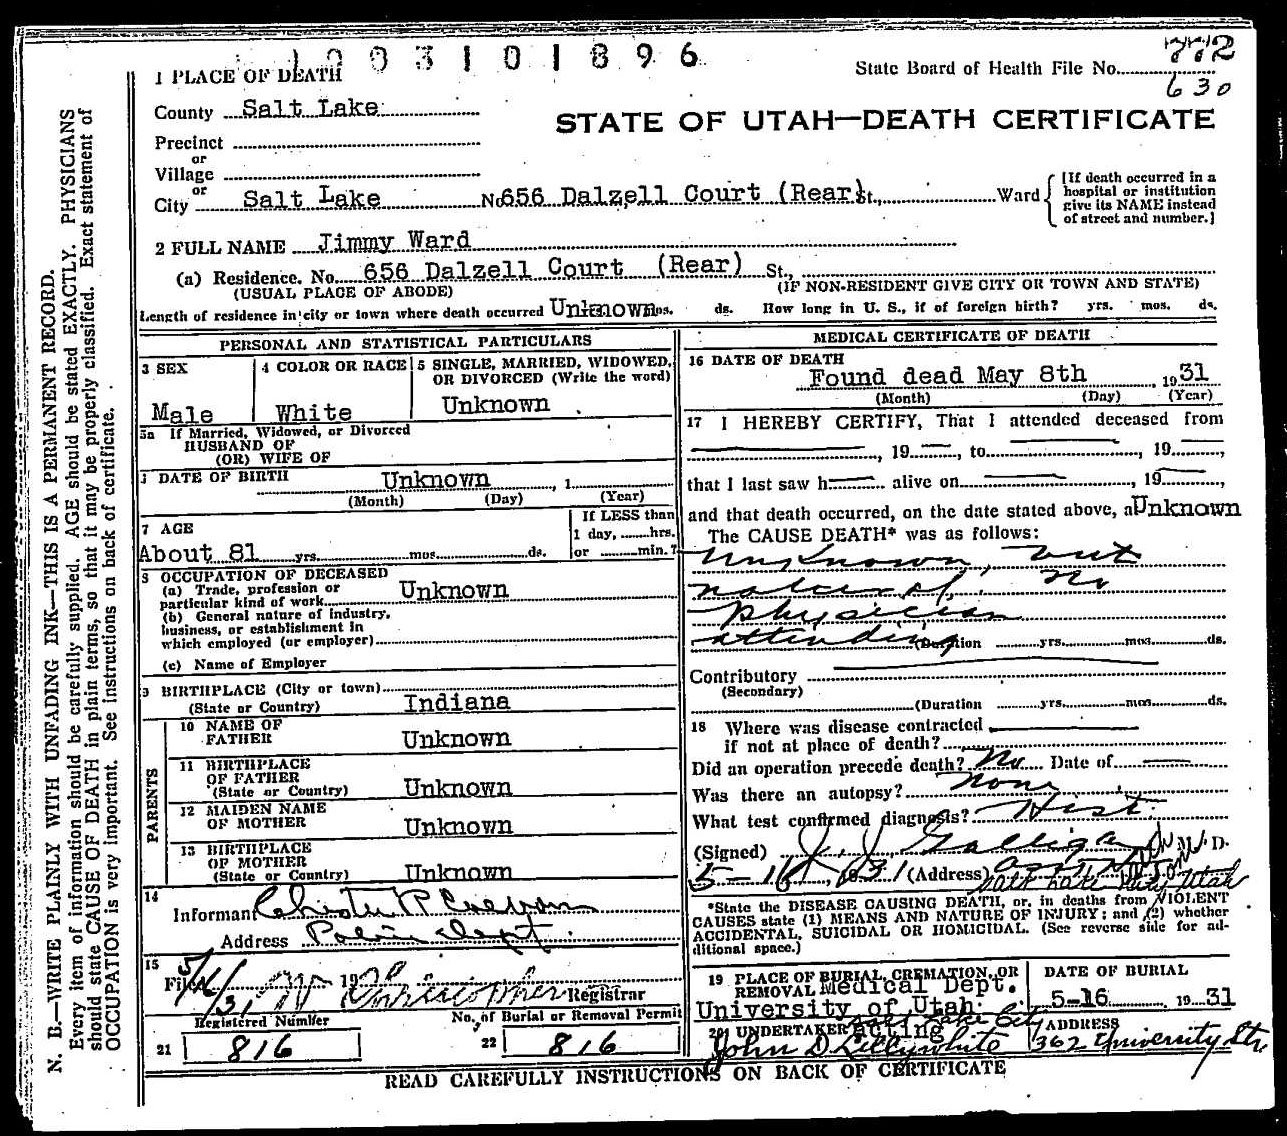 1003101896
1 PLACE OF DEATH
State Board of Health File No. 772
630
County Salt Lake
STATE OF UTAH—DEATH CERTIFICATE
Precinct
or
Village
or
City Salt Lake No. 656 Dalzell Court (Rear) St., Ward
[If death occurred in a hospital or institution give its NAME instead of street and number.]
2 FULL NAME Jimmy Ward
(a) Residence. No. 656 Dalzell Court (Rear) St.,
(USUAL PLACE OF ABODE) (IF NON-RESIDENT GIVE CITY OR TOWN AND STATE)
Length of residence in city or town where death occurred Unknown mos. ds. How long in U. S., if of foreign birth? yrs. mos. ds.
PERSONAL AND STATISTICAL PARTICULARS
3 SEX 4 COLOR OR RACE 5 SINGLE, MARRIED, WIDOWED,
OR DIVORCED (Write the word)
Male White Unknown
5a If Married, Widowed, or Divorced
HUSBAND OF
(OR) WIFE OF
DATE OF BIRTH Unknown , 1
(Month) (Day) (Year)
7 AGE
If LESS than
1 day, hrs.
About 81 yrs. mos. ds. or min.?
8 OCCUPATION OF DECEASED
(a) Trade, profession or
particular kind of work Unknown
(b) General nature of industry,
business, or establishment in
which employed (or employer)
(c) Name of Employer
9 BIRTHPLACE (City or town)
(State or Country) Indiana
PARENTS
10 NAME OF
FATHER Unknown
11 BIRTHPLACE
OF FATHER
(State or Country) Unknown
12 MAIDEN NAME
OF MOTHER Unknown
13 BIRTHPLACE
OF MOTHER
(State or Country) Unknown
14
Informant Chester P
Address Police Dept.
15
Filed 5/16/31 19
Registrar
Registered Number No. of Burial or Removal Permit
21 816 22 816
MEDICAL CERTIFICATE OF DEATH
16 DATE OF DEATH
Found dead May 8th 1931
(Month) (Day) (Year)
17 I HEREBY CERTIFY, That I attended deceased from
, 19 , to , 19 ,
that I last saw h alive on , 19 ,
and that death occurred, on the date stated above, at Unknown
The CAUSE DEATH* was as follows:
Unknown, but
natural. No
physician
attending (Duration yrs. mos. ds.
Contributory
(Secondary)
(Duration yrs. mos. ds.
18 Where was disease contracted
if not at place of death?
Did an operation precede death? No Date of
Was there an autopsy? None
What test confirmed diagnosis? Hist.
(Signed) J. J. Galligan M. D.
5-16, 1931 (Address)
Salt Lake City Utah
*State the DISEASE CAUSING DEATH, or, in deaths from VIOLENT
CAUSES state (1) MEANS AND NATURE OF INJURY; and (2) whether
ACCIDENTAL, SUICIDAL OR HOMICIDAL. (See reverse side for ad-
ditional space.)
19 PLACE OF BURIAL, CREMATION, OR
REMOVAL Medical Dept.
University of Utah.
DATE OF BURIAL
5-16 1931
Salt Lake City
20 UNDERTAKER acting
John D Lillywhite
ADDRESS
362 University Str
READ CAREFULLY INSTRUCTIONS ON BACK OF CERTIFICATE
N. B.—WRITE PLAINLY WITH UNFADING INK—THIS IS A PERMANENT RECORD.
Every item of information should be carefully supplied. AGE should be stated EXACTLY. PHYSICIANS
should state CAUSE OF DEATH in plain terms, so that it may be properly classified. Exact statement of
OCCUPATION is very important. See instructions on back of certificate.